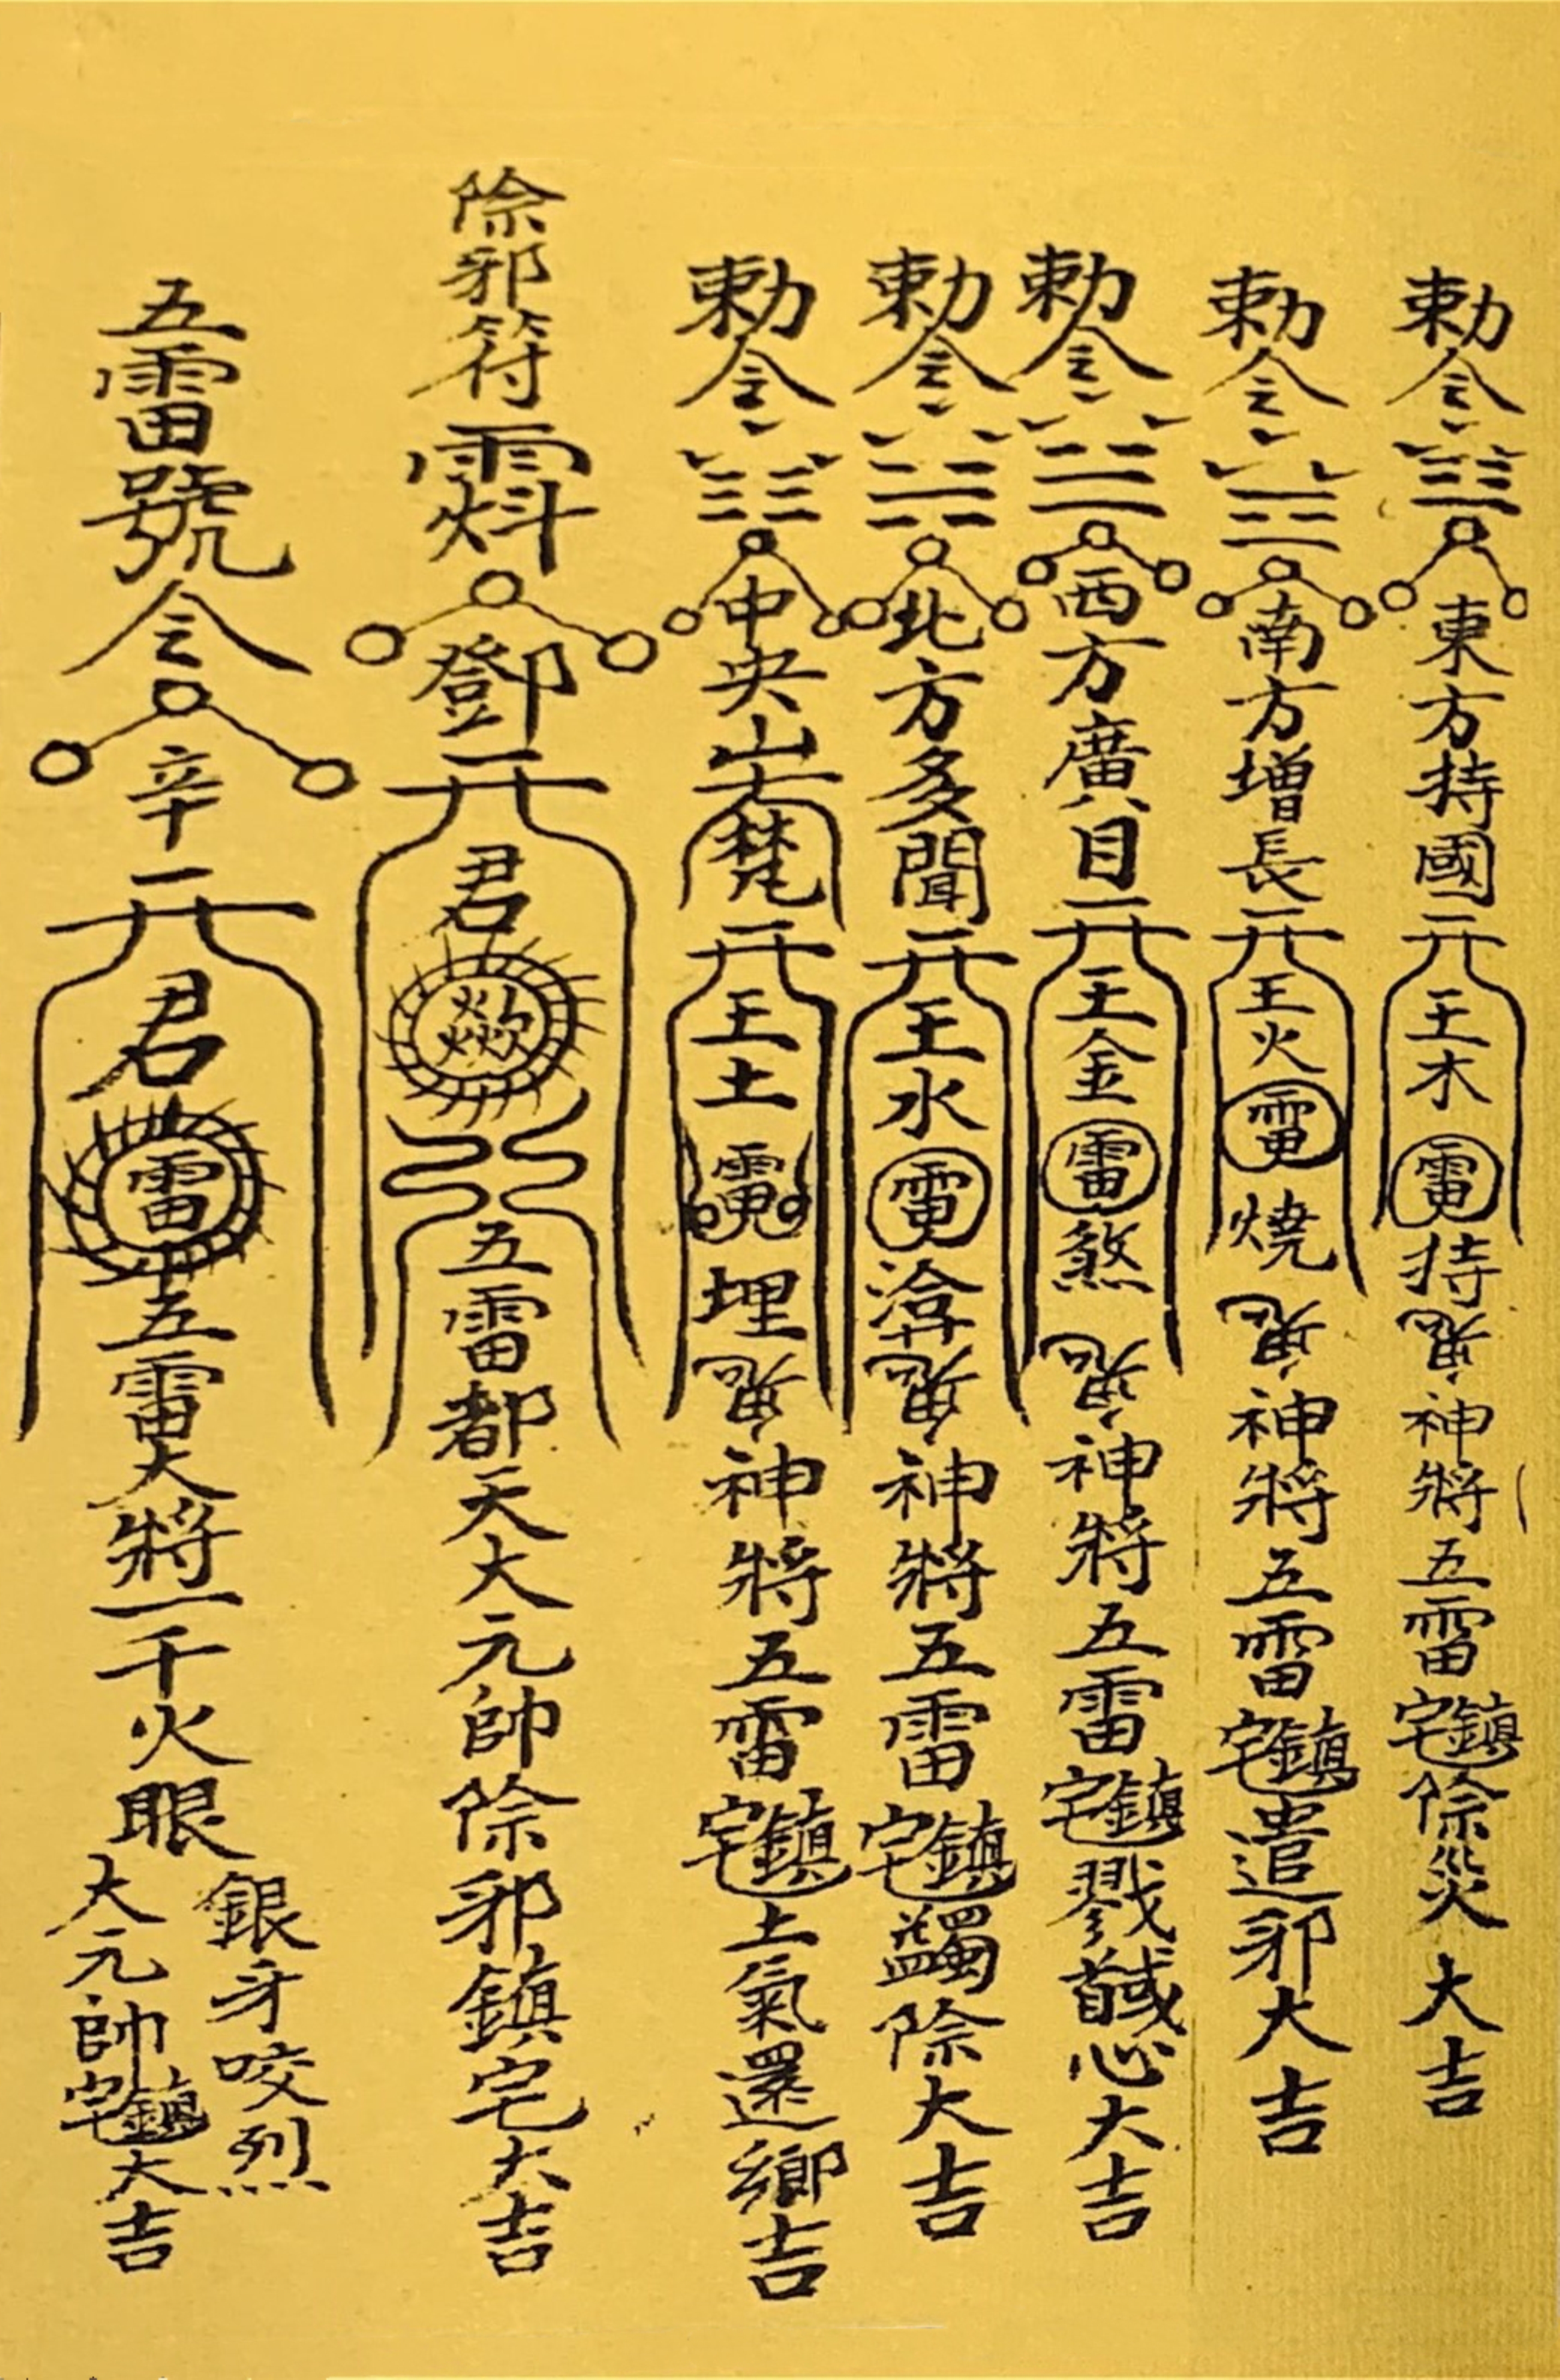 勅令東方持國王木雷持神將五雷鎮宅除災大吉
勅令南方增長王火電燒神將五雷鎮宅遣邪大吉
勅令西方廣目王金雷煞神將五雷鎮宅戮馘心大吉
勅令北方多聞王水電神將五雷鎮宅蠲除大吉
勅令中央梵王土埋神將五雷鎮宅土氣還鄉吉
除邪符鄧君五雷都天大元帥除邪鎮宅大吉
五雷號令辛君雷五雷大將一千火眼
銀牙咬烈
大元帥鎮宅大吉